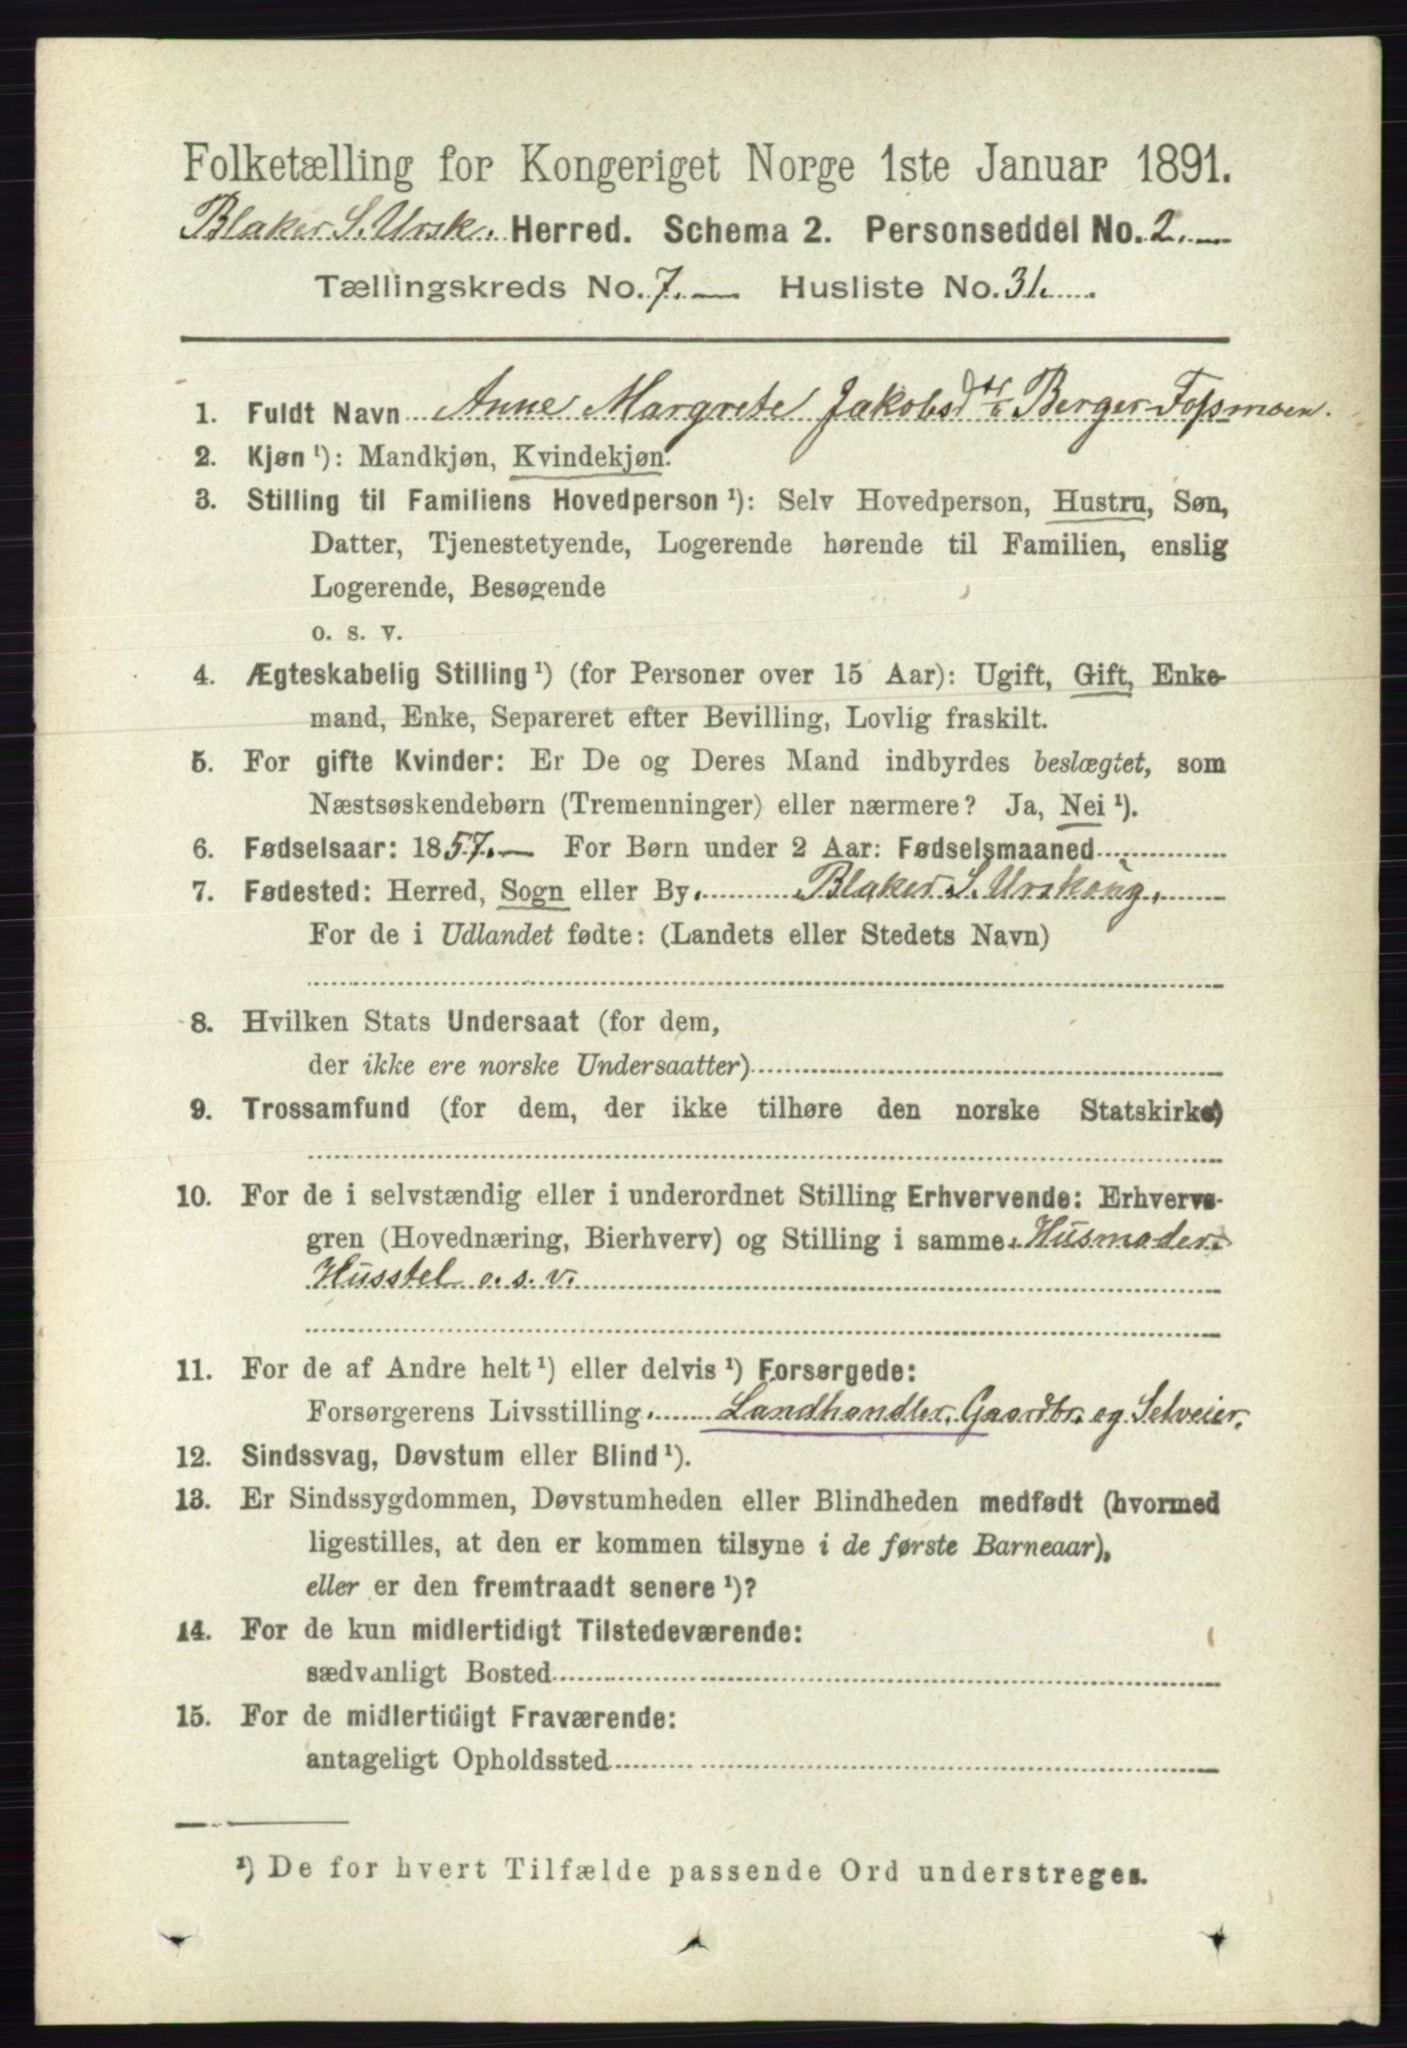 Folketælling for Kongeriget Norge 1ste Januar 1891.
Blaker S. Ursk. Herred. Schema 2. Personseddel No. 2.
Tællingskreds No. 7. Husliste No. 31.
1. Fuldt Navn Anne Margrete Jakobsdtr Berger
2. Kjøn ¹): Mandkjøn, Kvindekjøn.
3. Stilling til Familiens Hovedperson ¹): Selv Hovedperson, Hustru, Søn,
Datter, Tjenestetyende, Logerende hørende til Familien, enslig
Logerende, Besøgende
o. s. v.
4. Ægteskabelig Stilling ¹) (for Personer over 15 Aar): Ugift, Gift, Enke-
mand, Enke, Separeret efter Bevilling, Lovlig fraskilt.
5. For gifte Kvinder: Er De og Deres Mand indbyrdes beslægtet, som
Næstsøskendebørn (Tremenninger) eller nærmere? Ja, Nei ¹).
6. Fødselsaar: 1857. For Børn under 2 Aar: Fødselsmaaned
7. Fødested: Herred, Sogn eller By. Blaker S. Urskoug.
For de i Udlandet fødte: (Landets eller Stedets Navn)
8. Hvilken Stats Undersaat (for dem,
der ikke ere norske Undersaatter)
9. Trossamfund (for dem, der ikke tilhøre den norske Statskirke)
10. For de i selvstændig eller i underordnet Stilling Erhvervende: Erhvervs-
gren (Hovednæring, Bierhverv) og Stilling i samme. Husmoder.
Husstel o. s. v.
11. For de af Andre helt ¹) eller delvis ¹) Forsørgede:
Forsørgerens Livsstilling. Landhandler, Gaardbr. og Selveier.
12. Sindssvag, Døvstum eller Blind ¹).
13. Er Sindssygdommen, Døvstumheden eller Blindheden medfødt (hvormed
ligestilles, at den er kommen tilsyne i de første Barneaar),
eller er den fremtraadt senere ¹)?
14. For de kun midlertidigt Tilstedeværende:
sædvanligt Bosted
15. For de midlertidigt Fraværende:
antageligt Opholdssted
¹) De for hvert Tilfælde passende Ord understreges.